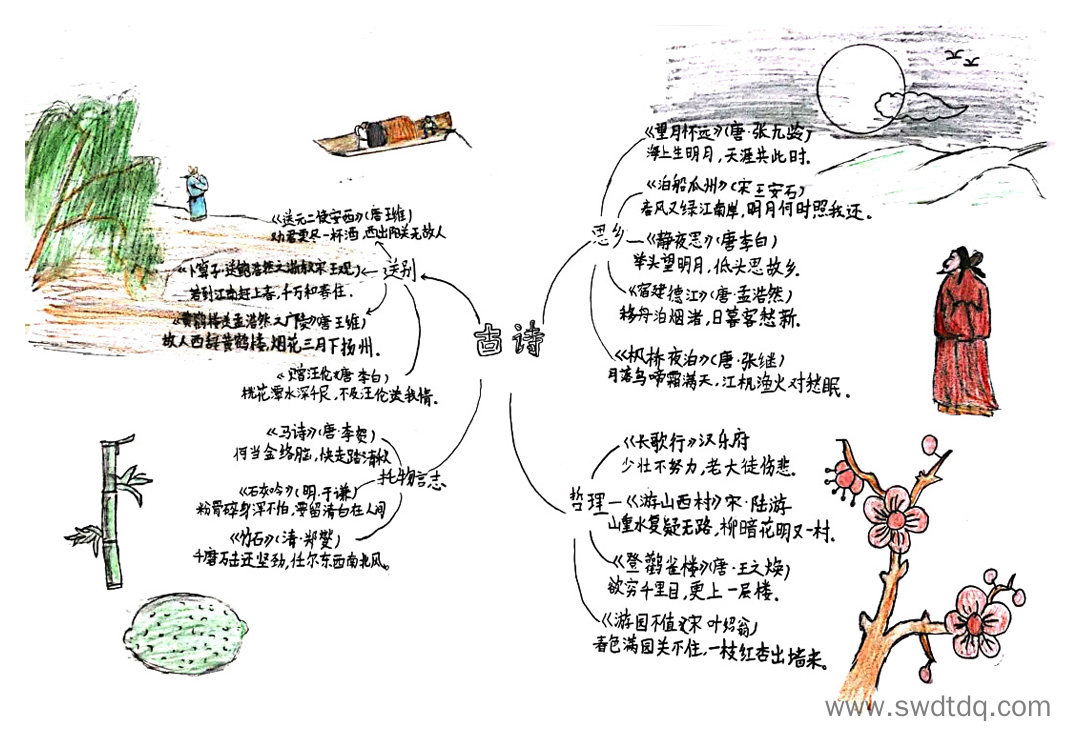 古诗
思乡
《望月怀远》(唐·张九龄)
海上生明月,天涯共此时。
《泊船瓜州》(宋王安石)
春风又绿江南岸,明月何时照我还。
《静夜思》(唐李白)
举头望明月,低头思故乡。
《宿建德江》(唐·孟浩然)
移舟泊烟渚,日暮客愁新。
《枫桥夜泊》(唐·张继)
月落乌啼霜满天,江枫渔火对愁眠。
哲理
《长歌行》汉乐府
少壮不努力,老大徒伤悲。
《游山西村》宋·陆游
山重水复疑无路,柳暗花明又一村。
《登鹳雀楼》(唐·王之焕)
欲穷千里目,更上一层楼。
《游园不值》(宋 叶绍翁)
春色满园关不住,一枝红杏出墙来。
送别
《送元二使安西》(唐王维)
劝君更尽一杯酒,西出阳关无故人
《卜算子·送鲍浩然之浙东》(宋王观)
若到江南赶上春,千万和春住。
《黄鹤楼送孟浩然之广陵》(唐王维)
故人西辞黄鹤楼,烟花三月下扬州。
《赠汪伦》(唐·李白)
桃花潭水深千尺,不及汪伦送我情。
托物言志
《马诗》(唐·李贺)
何当金络脑,快走踏清秋
《石灰吟》(明·于谦)
粉骨碎身浑不怕,要留清白在人间
《竹石》(清·郑燮)
千磨万击还坚劲,任尔东西南北风。
www.swdtdq.com